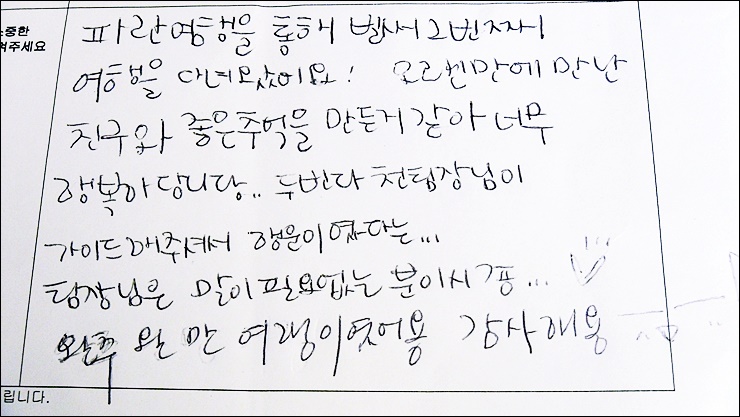 소중한
겨주세요
파란여행을 통해 벌써 2번째
여행을 다녀왔어요! 오르켄만에 만난
친구와 좋은추억을 만든거 같아 너무
행복하당니당.. 두번다 천팀장님이
가이드해주셔서 행운이였다는...
팀장님은 말이필요없는 분이시공... ♡
완 만 여행이였어용 감사해용
립니다.